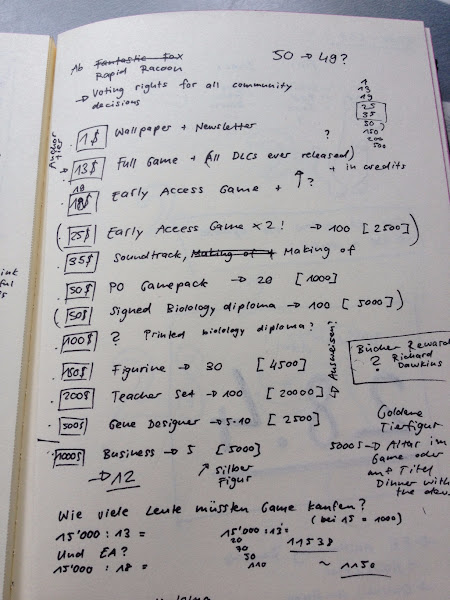 Ab Fantastic Fox
Rapid Racoon
50 → 49?
→ Voting rights for all community
decisions
1
13
19
25
35
50
150
200
500
Anchor
Tier
1$ Wallpaper + Newsletter
?
13$ Full Game + (All DLCs ever released)
+ in credits
18$ Early Access Game + ↑ ?
(25$ Early Access Game x2! → 100 [2500])
35$ Soundtrack, Making of + Making of
50$ PO Gamepack → 20 [1000]
(50$ Signed Biolology diploma → 100 [5000])
100$ ? Printed biolology diploma?
Ausweisen?
150$ Figurine → 30 [4500]
200$ Teacher Set → 100 [20000]
500$ Gene Designer → 5-10 [2500]
1000$ Business → 5 [5000]
→ 12
↗ Silber
Figur
Bücher Reward
? Richard
Dawkins
Goldene
Tierfigur
5000$ → Altar im
Game oder
auf Titel
Dinner with
the devs
Wie viele Leute müssten Game kaufen?
(bei 15 = 1000)
15'000 : 13 =
15'000 : 13 =
20
70
50
110
11538
~ 1150
Und EA?
15'000 : 18 =